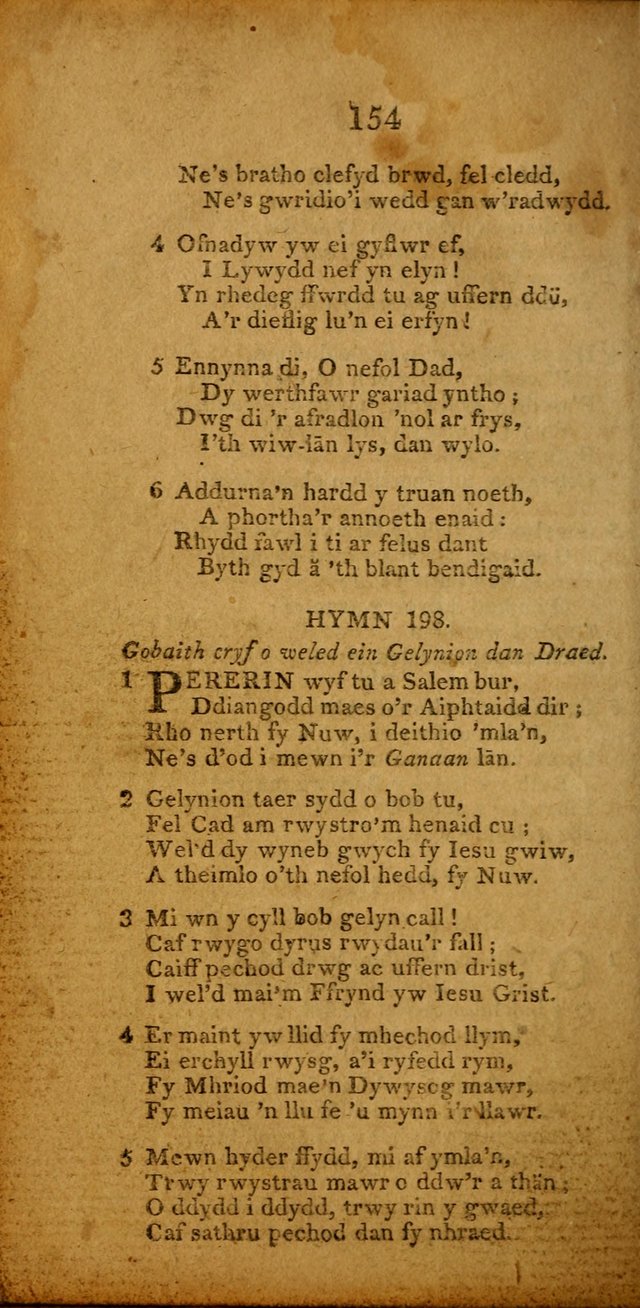 154
Ne's bratho clefyd brwd, fel cledd,
Ne's gwridio'i wedd gan w'radwydd.
4 Ofnadyw yw ei gyflwr ef,
I Lywydd nef yn elyn!
Yn rhedeg ffwrdd tu ag uffern ddü,
A'r dieflig lu'n ei erfyn!
5 Ennynna di, O nefol Dad,
Dy werthfawr gariad yntho;
Dwg di 'r afradlon 'nol ar frys,
I'th wiw-län lys, dan wylo.
6 Addurna'n hardd y truan noeth,
A phortha'r annoeth enaid:
Rhydd fawl i ti ar felus dant
Byth gyd ä 'th blant bendigaid.
HYMN 198.
Gobaith cryf o weled ein Gelynion dan Draed.
1 PERERIN wyf tu a Salem bur,
Ddiangodd maes o'r Aiphtaidd dir;
Rho nerth fy Nuw, i deithio 'mla'n,
Ne's d'od i mewn i'r Ganaan län.
2 Gelynion taer sydd o bob tu,
Fel Cad am rwystro'm henaid cu;
Wel'd dy wyneb gwych fy Iesu gwiw,
A theimlo o'th nefol hedd, fy Nuw.
3 Mi wn y cyll bob gelyn call!
Caf rwygo dyrus rwydau'r fall;
Caiff pechod drwg ac uffern drist,
I wel'd mai'm Ffrynd yw Iesu Grist.
4 Er maint yw llid fy mhechod llym,
Ei erchyll rwysg, a'i ryfedd rym,
Fy Mhriod mae'n Dywyscg mawr,
Fy meiau 'n llu fe 'u mynn i'r llawr.
5 Mewn hyder ffydd, mi af ymla'n,
Trwy rwystrau mawr o ddw'r a thän;
O ddydd i ddydd, trwy rin y gwaed,
Caf sathru pechod dan fy nhraed.